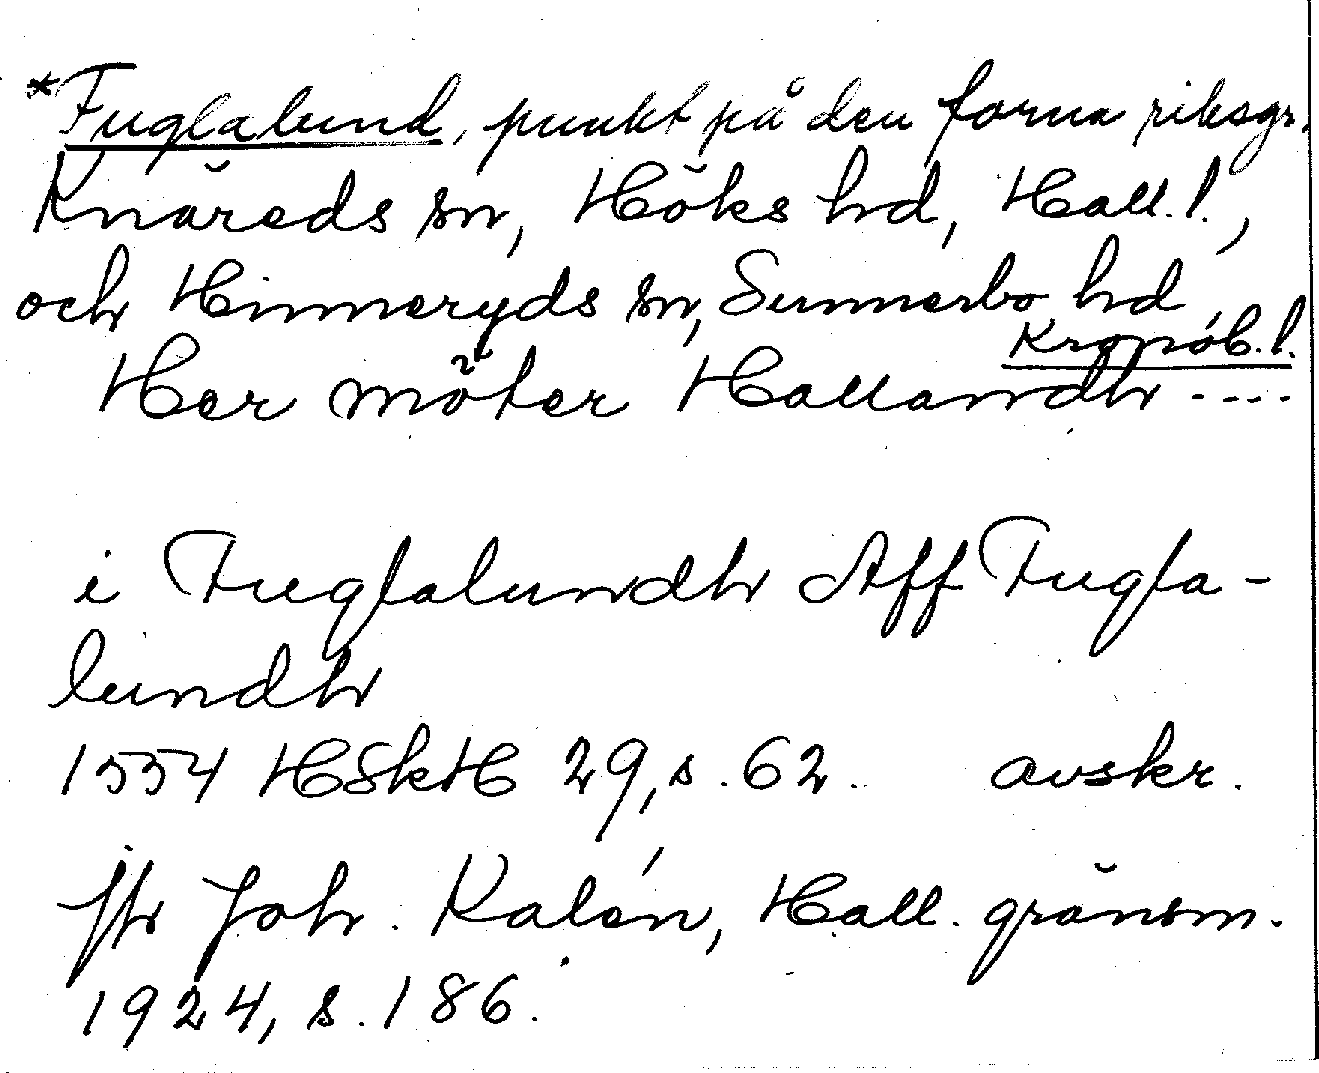 *Fuglalund, punkt på den forna riksgr.
Knäreds sn, Höks hd, Hall. l.,
och Hinneryds sn, Sunnerbo hd,
Kronob. l.
Her möter Hallandh ----
i Fuglalundh Aff Fugla-
lundh
1554 HSkH 29, s. 62. avskr.
jfr Joh. Kalén, Hall. gränsm.
1924, s. 186.